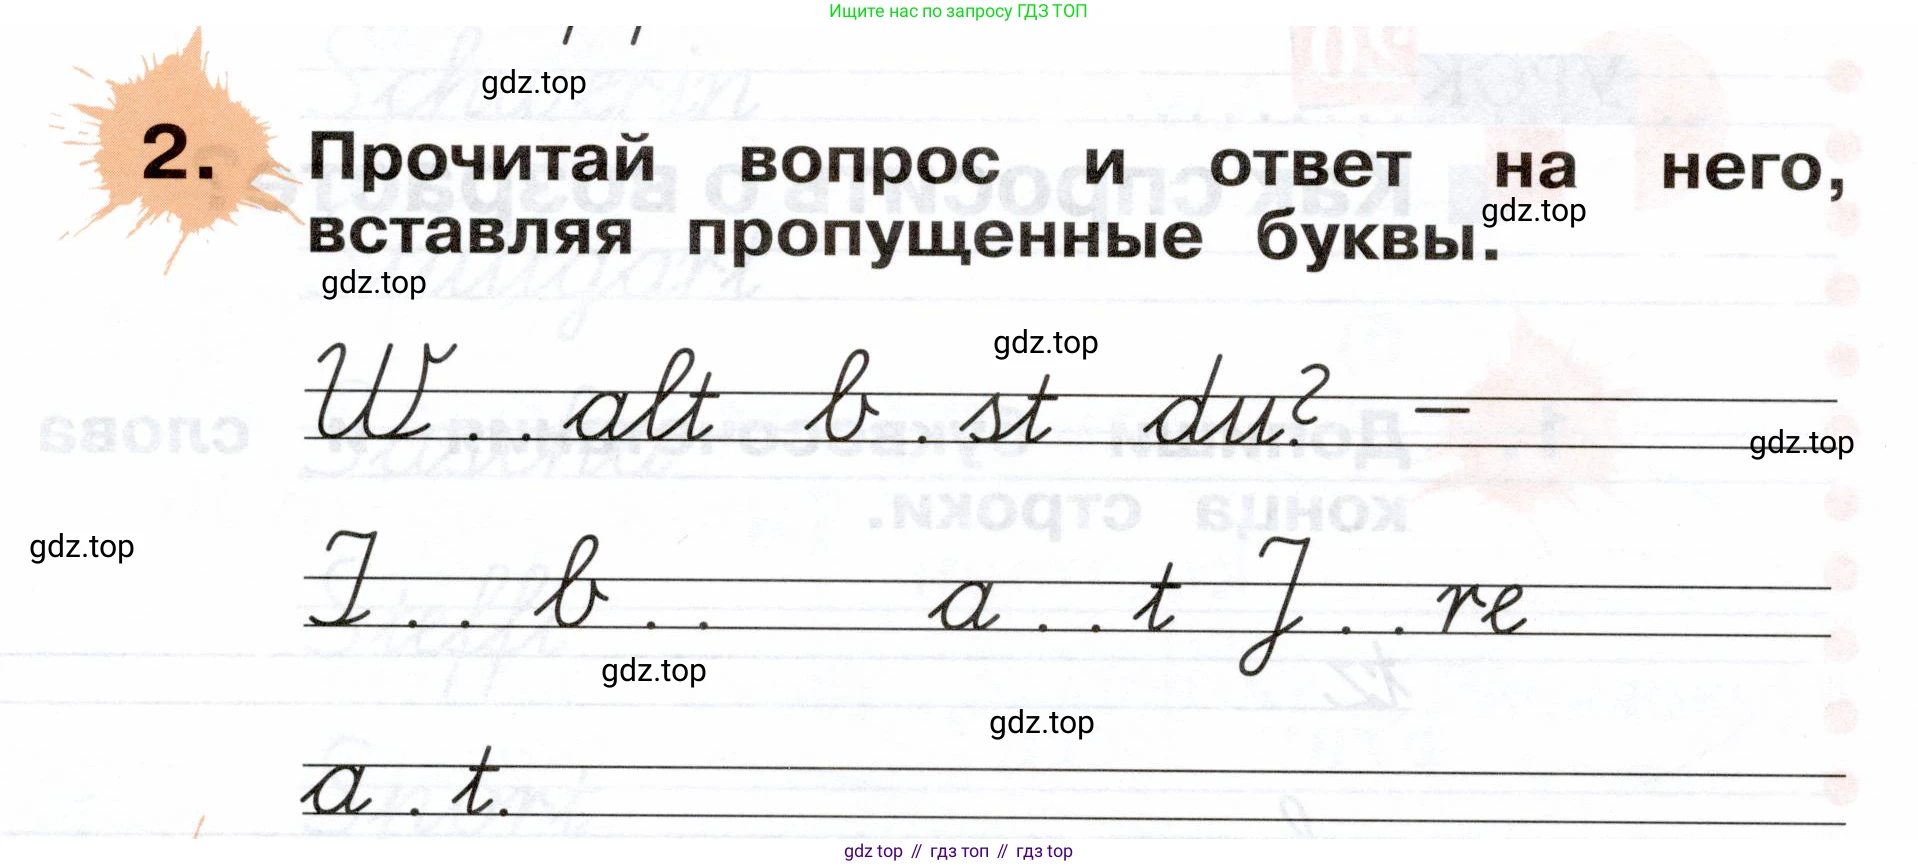 Ищите нас по запросу ГДЗ ТОП
gdz.top
2. Прочитай вопрос и ответ на него,
вставляя пропущенные буквы.
gdz.top
gdz.top
gdz.top
W . . alt b . st du? –
gdz.top
gdz.top
I . . b . . a . . t J . . re
gdz.top
gdz.top
a . t.
gdz top // гдз топ // гдз top